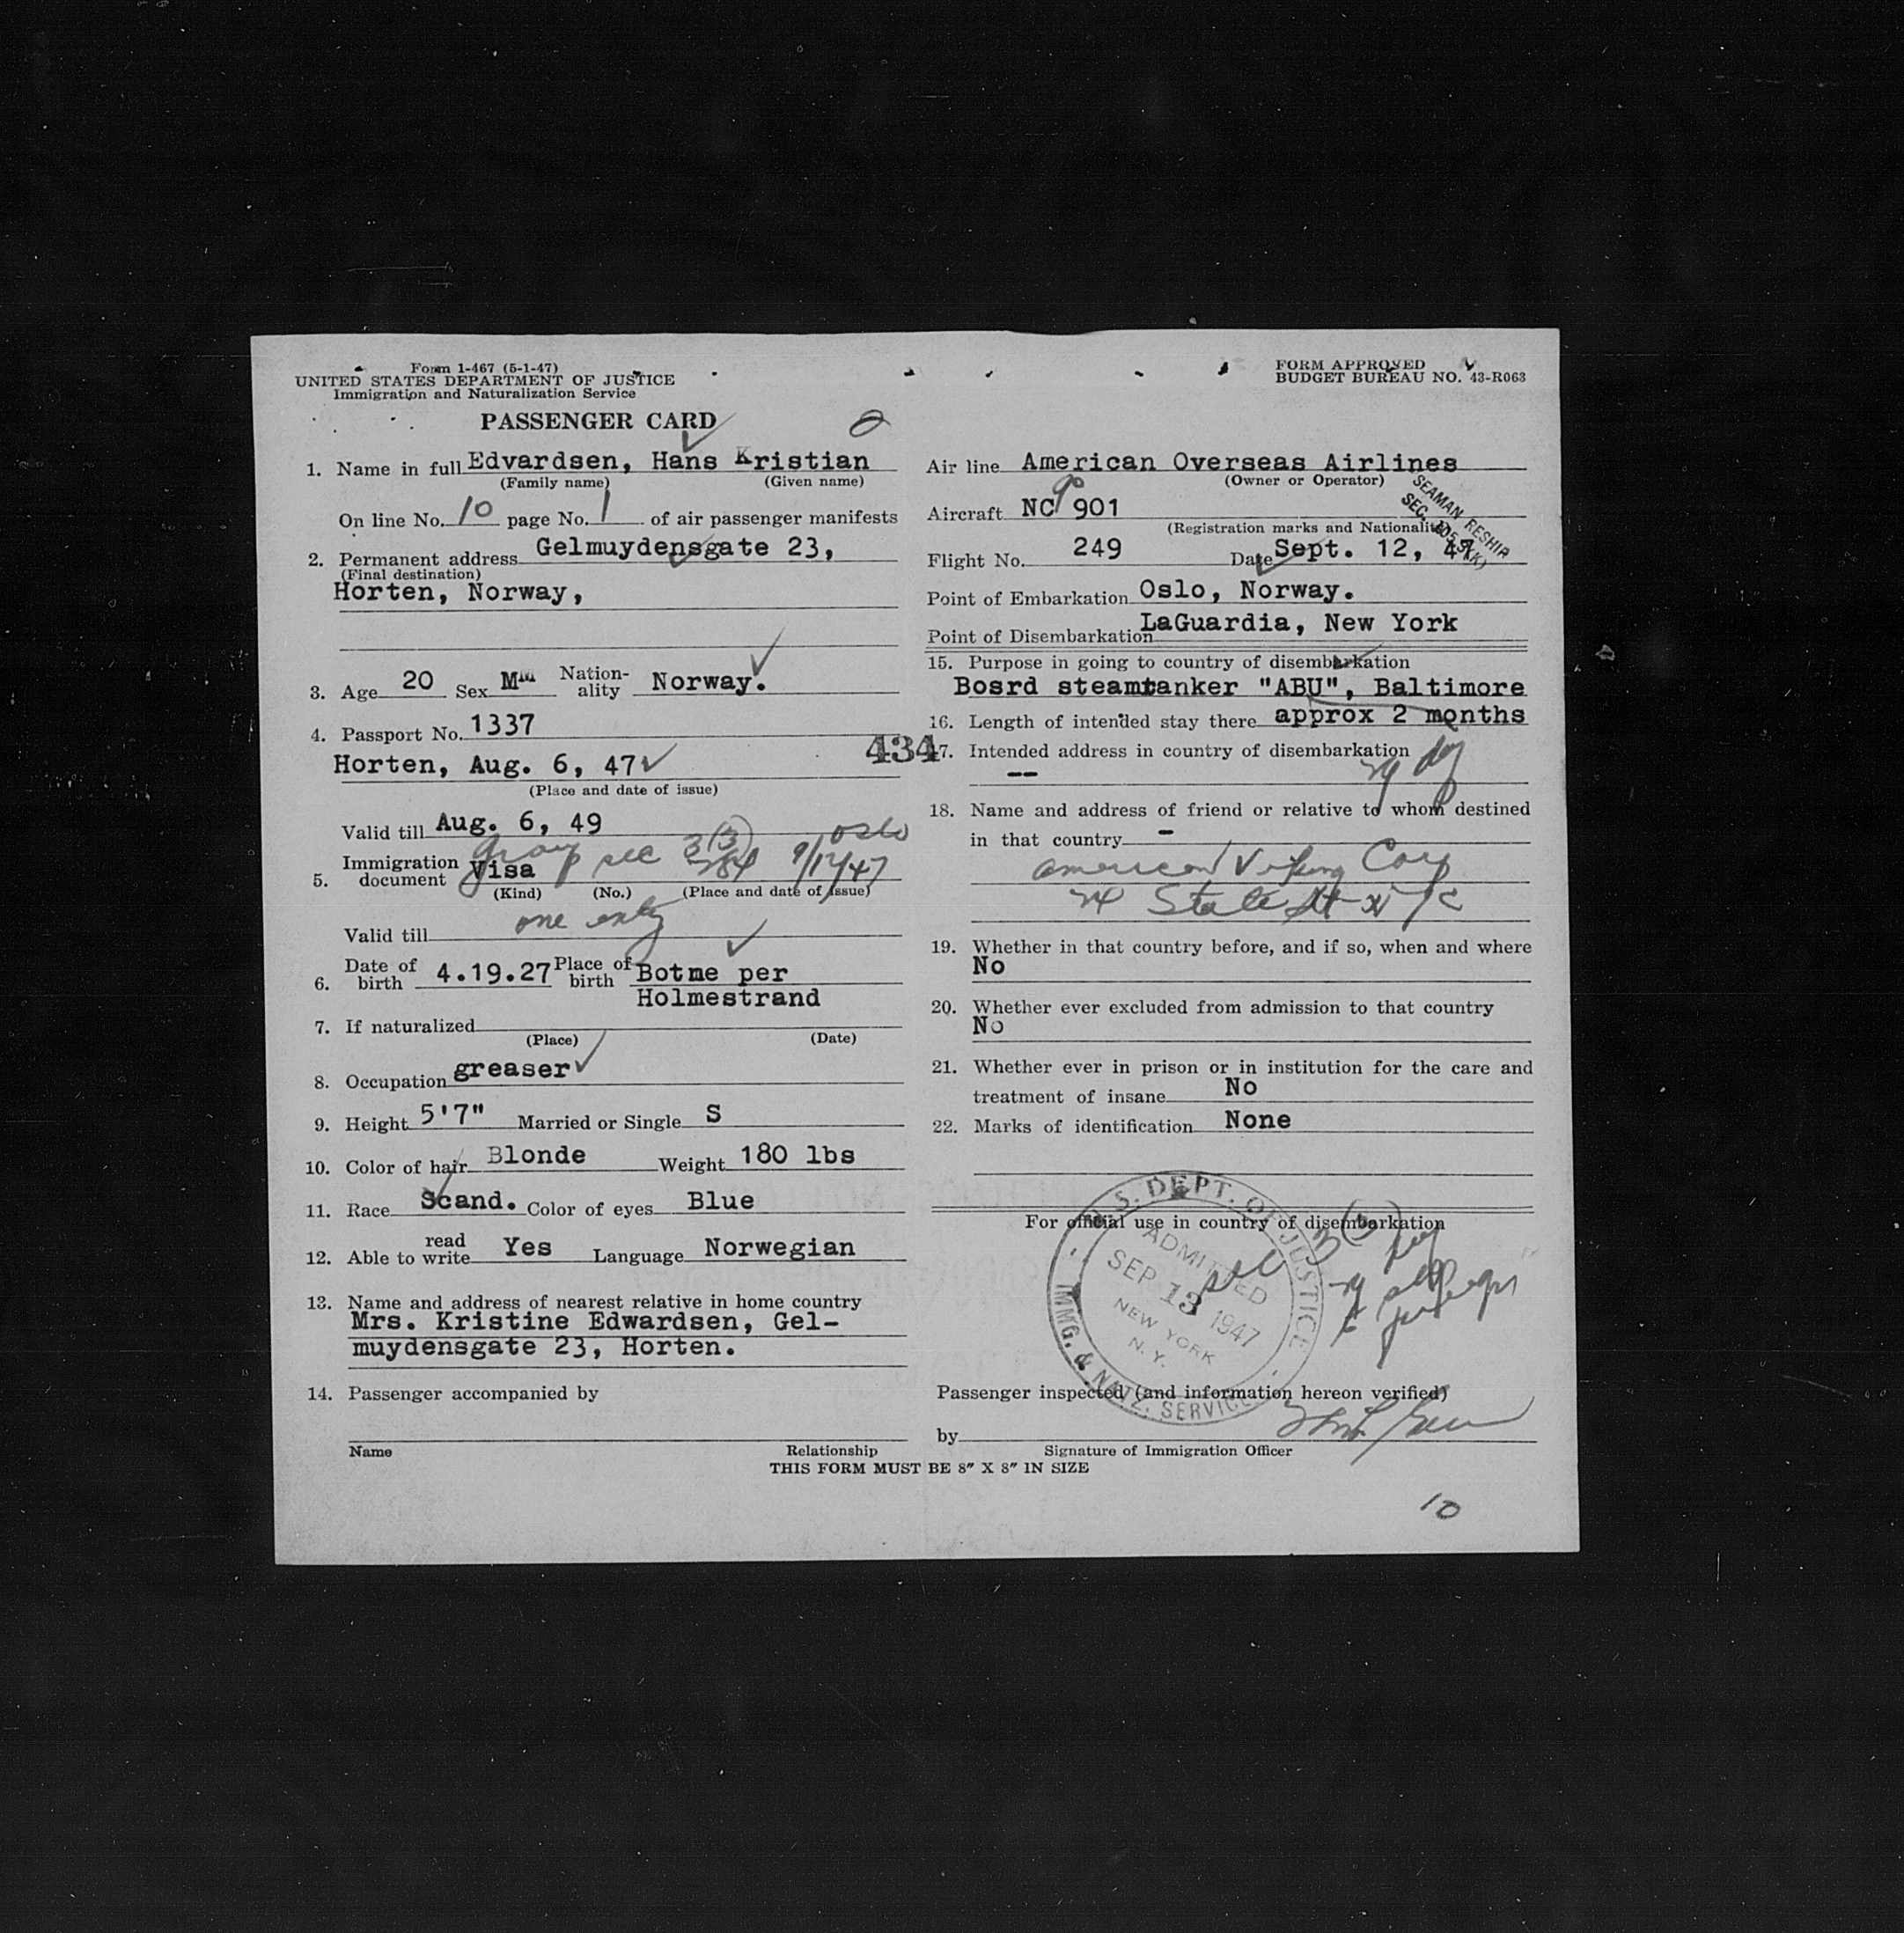 Form 1-467 (5-1-47)
UNITED STATES DEPARTMENT OF JUSTICE
Immigration and Naturalization Service
PASSENGER CARD
1. Name in full Edvardsen, Hans Kristian
(Family name) (Given name)
On line No. 10 page No. 1 of air passenger manifests
2. Permanent address Gelmuydensgate 23,
(Final destination)
Horten, Norway,
3. Age 20 Sex M Nation-ality Norway.
4. Passport No. 1337
Horten, Aug. 6, 47
(Place and date of issue)
Valid till Aug. 6, 49
group sec 3(3) Oslo
5. Immigration document Visa 284 9/12/47
(Kind) (No.) (Place and date of issue)
one entry
Valid till
6. Date of birth 4.19.27 Place of birth Botme per
Holmestrand
7. If naturalized
(Place) (Date)
8. Occupation greaser
9. Height 5'7" Married or Single S
10. Color of hair Blonde Weight 180 lbs
11. Race Scand. Color of eyes Blue
12. Able to read write Yes Language Norwegian
13. Name and address of nearest relative in home country
Mrs. Kristine Edwardsen, Gel-
muydensgate 23, Horten.
14. Passenger accompanied by
Name Relationship
FORM APPROVED
BUDGET BUREAU NO. 43-R063
Air line American Overseas Airlines
(Owner or Operator)
Aircraft NC 901
(Registration marks and Nationality)
SEAMAN RESHIP
SEC.
Flight No. 249 Date Sept. 12, 47
Point of Embarkation Oslo, Norway.
Point of Disembarkation LaGuardia, New York
15. Purpose in going to country of disembarkation
Bosrd steamtanker "ABU", Baltimore
16. Length of intended stay there approx 2 months
434
17. Intended address in country of disembarkation
--
29 day
18. Name and address of friend or relative to whom destined
in that country -
American Viking Corp
24 State St N Y C
19. Whether in that country before, and if so, when and where
No
20. Whether ever excluded from admission to that country
No
21. Whether ever in prison or in institution for the care and
treatment of insane No
22. Marks of identification None
For official use in country of disembarkation
U.S. DEPT. OF JUSTICE
ADMITTED
SEP 13 1947
NEW YORK
N. Y.
IMMG. & NATZ. SERVICE
sec 3(3)
29 day
Passenger inspected (and information hereon verified)
by
Signature of Immigration Officer
THIS FORM MUST BE 8" X 8" IN SIZE
10